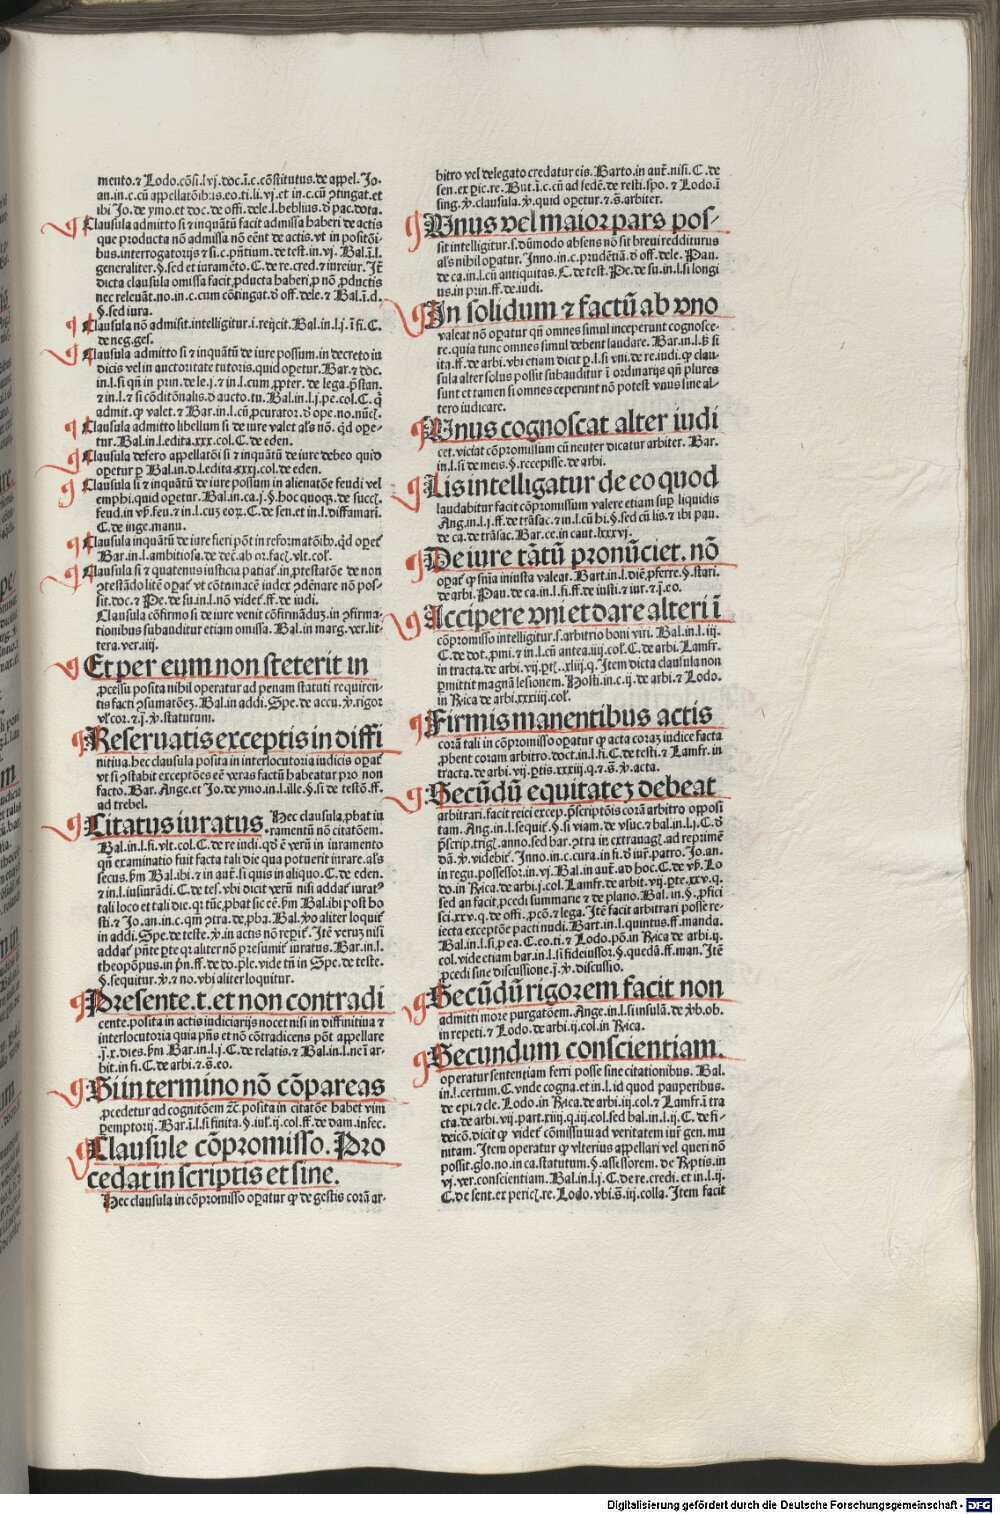 mento.⁊ Lodo.cõsi.lvj.doc.ĩ.c.cõstitutus.de appel.Jo.
an.in.c.cũ appellatõibus.eo.ti.li.vj.et in.c.cũ ↄtingat.et
ibi Jo.de ymo.et doc.de offi.dele.l.beblius.ð pac.dota.
Clausula admitto si ⁊ inquãtũ facit admissa haberi de actis
que producta nõ admissa nõ cẽnt de actis.vt in positõi
bus.interrogatorijs ⁊ si.c.pñtium.de test.in.vj. Bal.ĩ.l.
generaliter.§.sed et iuramẽto.C.de re.cred.⁊ iureiur.Itẽ
dicta clausula omissa facit ꝓducta haberi ꝓ nõ ꝓductis
nec relevãt.no.in.c.cum cõtingat.ð off.dele.⁊ Bal.ĩ.d.
§.sed iura.
Clausula nõ admisit.intelligitur.i.reijcit.Bal.in.l.j.ĩ fi.C.
de neg.ges.
Clausula admitto si ⁊ inquãtũ de iure possum.in decreto iu
dicis vel in auctoritate tutoris.quid oꝑetur.Bar.⁊ doc.
in.l.si qñ in prin.de le.j.⁊ in.l.cum ꝓpter.de lega.p̃stan.
⁊ in.l.⁊ si cõditõnalis.ð aucto.tu. Bal.in.l.j.pe.col.C.ꝙ
admit.ꝙ valet.⁊ Bar.in.l.cũ ꝓcurator.ð ope.no.nũcĩ.
Clausula admitto libellum si de iure valet als nõ. q̃d oꝑe-
tur.Bal.in.l.edita.xxx.col.C.de eden.
Clausula defero appellatõi si ⁊ inquãtũ de iure debeo quid
oꝑetur ꝑ Bal.in.ð.l.edita.xxxj.col.de eden.
Clausula si ⁊ inquãtũ de iure possum in alienatõe feudi vel
emphi.quid oꝑetur. Bal.in.ca.j.§.hoc quoqꝫ.de succĩ.
feud.in v̓b.feu.⁊ in.l.cuꝫ eoꝝ.C.de sen.et in.l.diffamari.
C.de inge.manu.
Clausula inquãtũ de iure fieri põt in reformatõibꝰ.q̃d oꝑet̃
Bar.in.l.ambitiosa.de decĩ.ab or.facĩ.vlt.col.
Clausula si ⁊ quatenus iusticia patiat̃.in ꝓtestatõe de non
ↄtestãdo litẽ oꝑat̃ vt cõtumacẽ iudex ↄdẽnare nõ pos-
sit.doc.⁊ Pe.de su.in.l.nõ videt̃.ff.de iudi.
Clausula cõfirmo si de iure venit cõfirmãduꝫ.in ↄfirma-
tionibus subauditur etiam omissa. Bal.in marg.ver.lit-
tera.ver.iiij.
Et per eum non steterit in
ꝓcessu posita nihil operatur ad penam statuti requiren-
tis facti ↄsumatõeꝫ. Bal.in addi.Spe.de accu.ꝟ.rigor
vl̓ cor.⁊.j.ꝟ.statutum.
Reseruatis exceptis in diffi
nitiua.hec clausula posita in interlocutoria iudicis oꝑat̃
vt si ↄstabit exceptões eẽ veras factũ habeatur pro non
facto. Bar. Ange.et Jo.de ymo.in.l.ille.§.si de testõ.ff.
ad trebel.
Citatus iuratus. Hec clausula ꝓbat iu
ramentũ nõ citatõem.
Bal.in.l.fi.vlt.col.C.de re iudi.qð ẽ verũ in iuramento
qñ examinatio fuit facta tali die qua potuerit iurare.als
secus.ꝟm Bal.ibi.⁊ in aut̃.si quis in aliquo.C.de eden.
⁊ in.l.iusiurãdi.C.de tes.vbi dicit verũ nisi addat̃ iuratꝰ
tali loco et tali die.qꝛ tũc ꝓbat sic eẽ.ꝟm Bal.ibi post ho
sti.⁊ Jo.an.in.c.qm̃ ↄtra.de ꝓba. Bal.ꝟo aliter loquit̃
in addi.Spe.de teste.ꝟ.in actis nõ reꝑit̃. Itẽ veruꝫ nisi
addat̃ pñte ꝑte qꝛ aliter nõ presumit̃ iuratus. Bar.in.l.
theopõpus.in p̃n.ff.de do.ple.vide tñ in Spe.de teste.
§.sequitur.ꝟ.⁊ no.vbi aliter loquitur.
Presente.t.et non contradi
cente.posita in actis iudiciarijs nocet nisi in diffinitiua ⁊
interlocutoria quia pñs et nõ cõtradicens põt appellare
.j.x.dies.ꝟm Bar.in.l.j.C.de relatis.⁊ Bal.in.l.ne ĩ ar-
bit.in fi.C.de arbi.⁊.s̃.eo.
Si in termino nõ cõpareas
ꝓcedetur ad cognitõem ⁊c̃.posita in citatõe habet vim
ꝑemptorij. Bar.ĩ.l.si finita.§.iul̓.ij.col.ff.de dam.infec.
Clausule cõpromisso. Pro
cedat in scriptis et sine.
Hec clausula in cõpromisso oꝑatur ꝙ de gestis corã ar-
bitro vel delegato credatur eis. Barto.in aut̃.nisi.C.de
sen.ex ꝑic.re. But.ĩ.c.cũ ad sedẽ.de resti.spo.⁊ Lodo.ĩ
sing.ꝟ.clausula.ꝟ.quid oꝑetur.⁊.s̃.arbiter.
Unus vel maior pars pos-
sit intelligitur.s.dũmodo absens nõ sit brevi redditurus
als nihil oꝑatur. Inno.in.c.prudẽtiã.ð off.dele. Pau.
de ca.in.l.cũ antiquitas.C.de test. Pe.de su.in.l.si longi
us.in prin.ff.de.iudi.
In solidum ⁊ factũ ab vno
valeat nõ oꝑatur qñ omnes simul inceperunt cognosce-
re.quia tunc omnes simul debent laudare. Bar.in.l.ꝫ si
ita.ff.de arbi.vbi etiam dicit ꝑ.l.si vni.de re.iudi.ꝙ clau-
sula alter solus possit subauditur ĩ ordinarijs qñ plures
sunt et tamen si omnes ceperunt nõ potest vnus sine al-
tero iudicare.
Unus cognoscat alter iudi
cet.viciat cõpromissum cũ neuter dicatur arbiter. Bar.
in.l.si de meis.§.recepisse.de arbi.
Lis intelligatur de eo quod
laudabitur facit cõpromissum valere etiam suꝑ liquidis
Ang.in.l.j.ff.de trãsac.⁊ in.l.cũ hi.§.sed cũ lis.⁊ ibi pau.
de ca.de trãsac. Bar.ce.in caut.lxxxvj.
De iure tãtũ pronũciet. nõ
oꝑat̃ ꝙ sñia iniusta valeat. Bart.in.l.diẽ ꝓferre.§.stari.
de arbi. Pau.de ca.in.l.fi.ff.de iusti.⁊ iur.⁊.j.eo.
Accipere vni et dare alteri ĩ
cõpromisso intelligitur.s.arbitrio boni viri. Bal.in.l.iij.
C.de dot.ꝓmi.⁊ in.l.cũ antea.iiij.col̓.C.de arbi. Lamfr.
in tracta.de arbi.vij.ꝑtĩ..xliij.q. Item dicta clausula non
ꝑmittit magnã lesionem. Hosti.in.c.ij.de arbi.⁊ Lodo.
in Rica.de arbi.xxxiiij.col̓.
Firmis manentibus actis
corã tali in cõpromisso oꝑatur ꝙ acta coraꝫ iudice facta
ꝓbent coram arbitro.doct.in.l.fi.C.de testi.⁊ Lamfr.in
tracta.de arbi.vij.ꝑtis.xxxiij.q.⁊.s̃.ꝟ.acta.
Secũdũ equitateꝫ debeat
arbitrari.facit reici excep.p̃scriptõis corã arbitro opposi
tam. Ang.in.l.sequit̃.§.si viam.de vsuc.⁊ bal.in.l.j.C.ð
p̃scrip.trigĩ.anno.sed bar.ↄtra in extrauagĩ.ad reprimẽ
dã.ꝟ.videbit̃. Inno.in.c.cura.in fi.ð iur̃.patro. Jo.an.
in regu.possessor.in.vj. Bal.in aut̃.ad hoc.C.de v̓b. Lo
do.in Rica.de arbi.j.col. Lamfr.de arbit.vij.ꝑte.xxv.q.
sed an facit ꝓcedi summarie ⁊ de plano. Bal.in.§.ꝓfici
sci.xxv.q.de offi.ꝓcõ.⁊ lega. Itẽ facit arbitrari posse re-
iecta exceptõe pacti nudi. Bart.in.l.quintus.ff.manda.
Bal.in.l.si ꝓ ea.C.eo.ti.⁊ Lodo.põ.in Rica de arbi.ij.
col.vide etiam bar.in.l.si fideiussor.§.quedã.ff.man. Itẽ
ꝓcedi sine discussione.j.ꝟ.discussio.
Secũdũ rigorem facit non
admitti more purgatõem. Ange.in.l.si insulã.de ꝟb.ob.
in repeti.⁊ Lodo.de arbi.ij.col.in Rica.
Secundum conscientiam.
operatur sententiam ferri posse sine citationibus. Bal.
in.l.certum.C.vnde cogna.et in.l.id quod pauperibus.
de epi.⁊ cle. Lodo.in Rica.de arbi.iij.col.⁊ Lamfr.ĩ tra
cta.de arbi.vij.part.xiiij.q.iij.col.sed bal.in.l.ij.C.de fi-
deicõ.dicit ꝙ videt̃ cõmissuuꝫ ad veritatem iur̃ gen.mu
nitam. Item operatur ꝙ vlterius appellari vel queri nõ
possit.glo.no.in ca.statutum.§.assessorem.de Rṗtis.in
vj.ver.conscientiam. Bal.in.l.j.C.de re.credi.et in.l.ij.
C.de sent.ex pericĩ.re. Lodo.vbi.s̃.iij.colla. Item facit
Digitalisierung gefördert durch die Deutsche Forschungsgemeinschaft - DFG